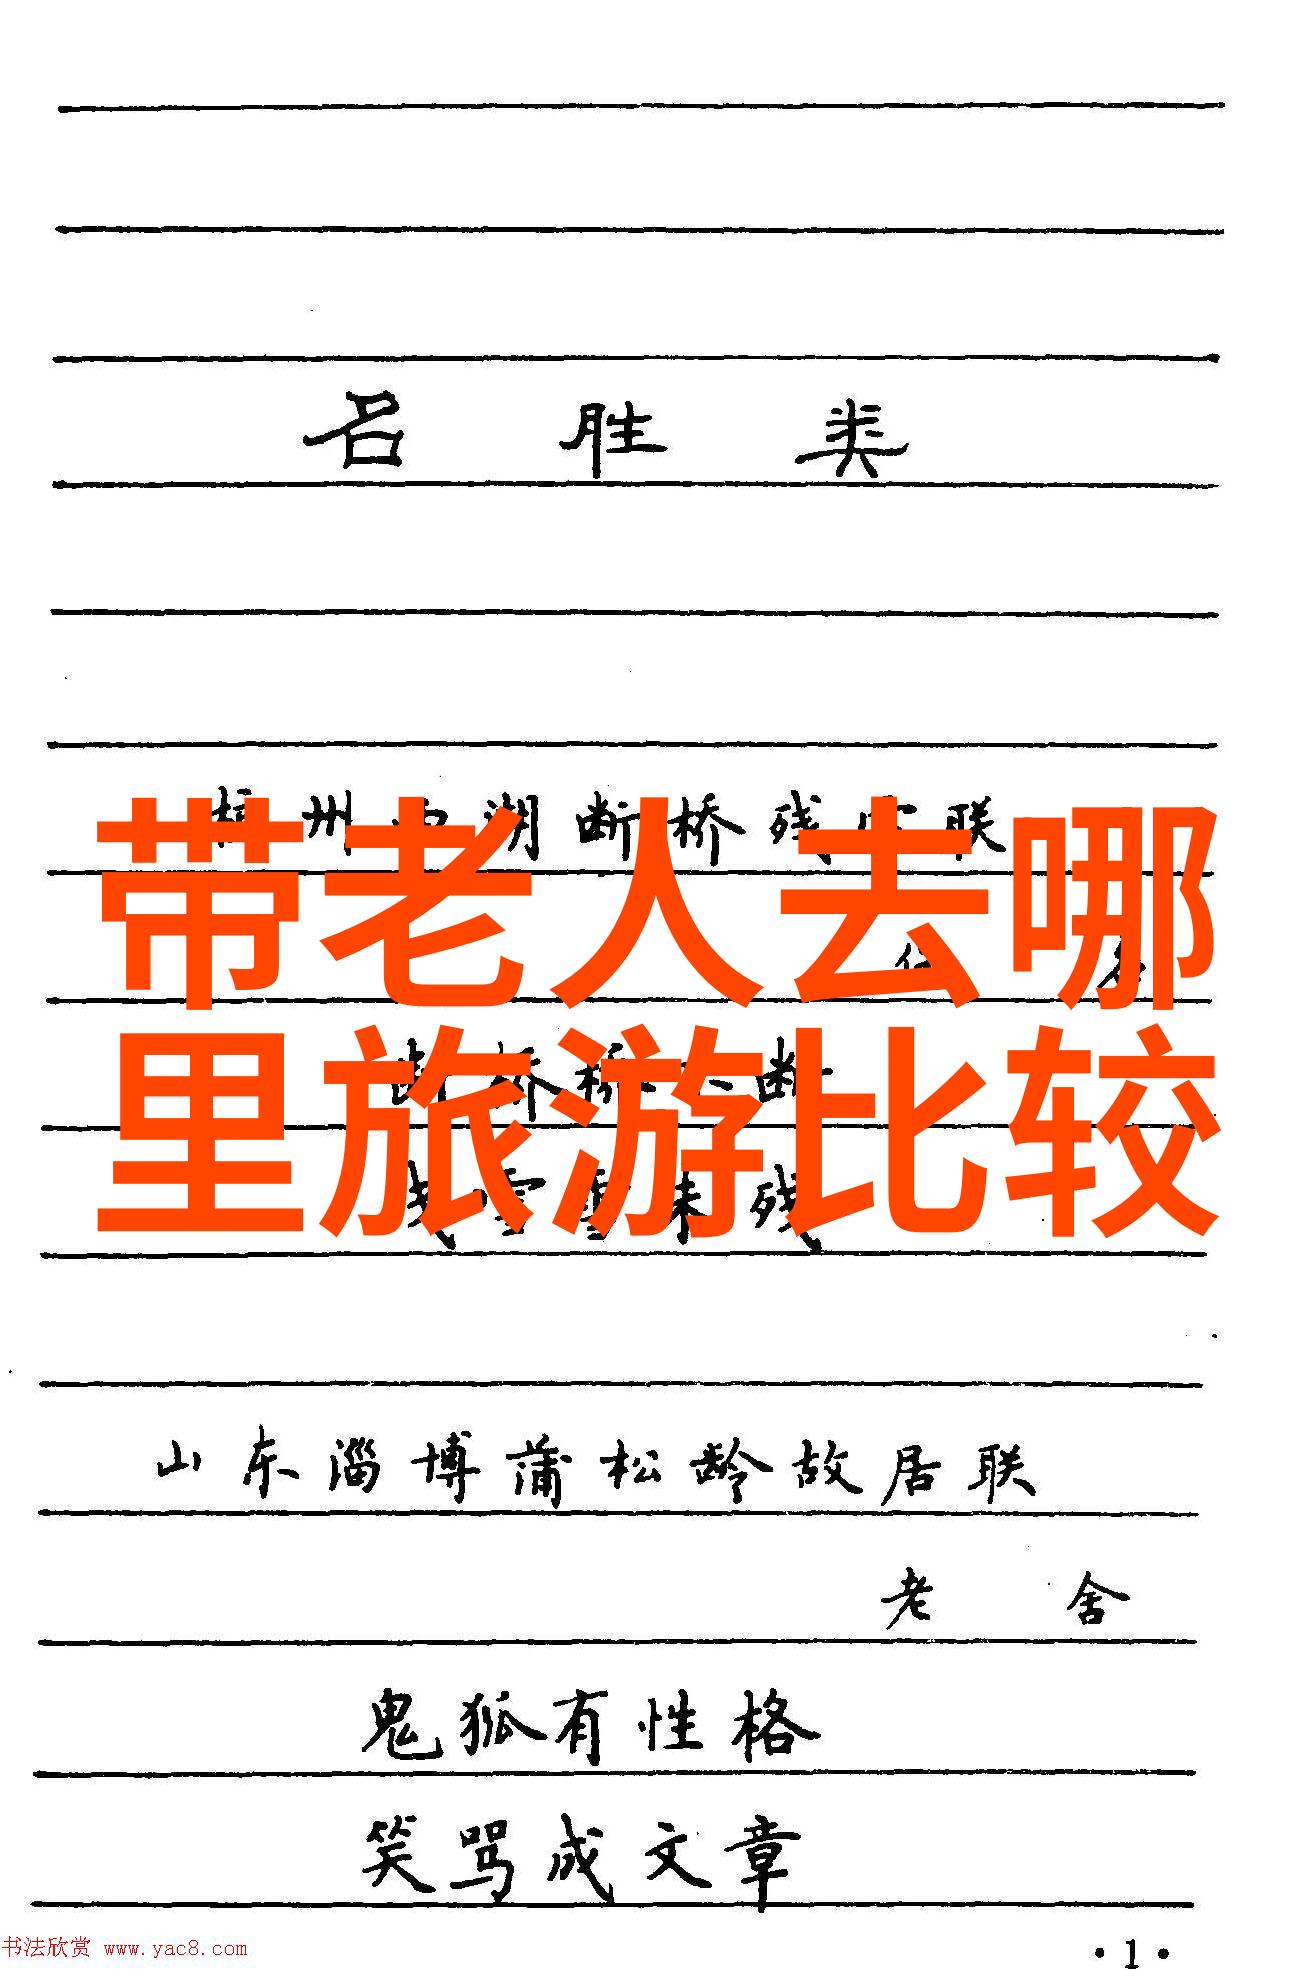 名胜类
杭州西湖断桥残雪联
带老人去哪
断桥桥不断
里旅游比较
残雪雪未残
山东淄博蒲松龄故居联
老舍
鬼狐有性格
笑骂成文章
书法欣赏 www.yac8.com
·1·